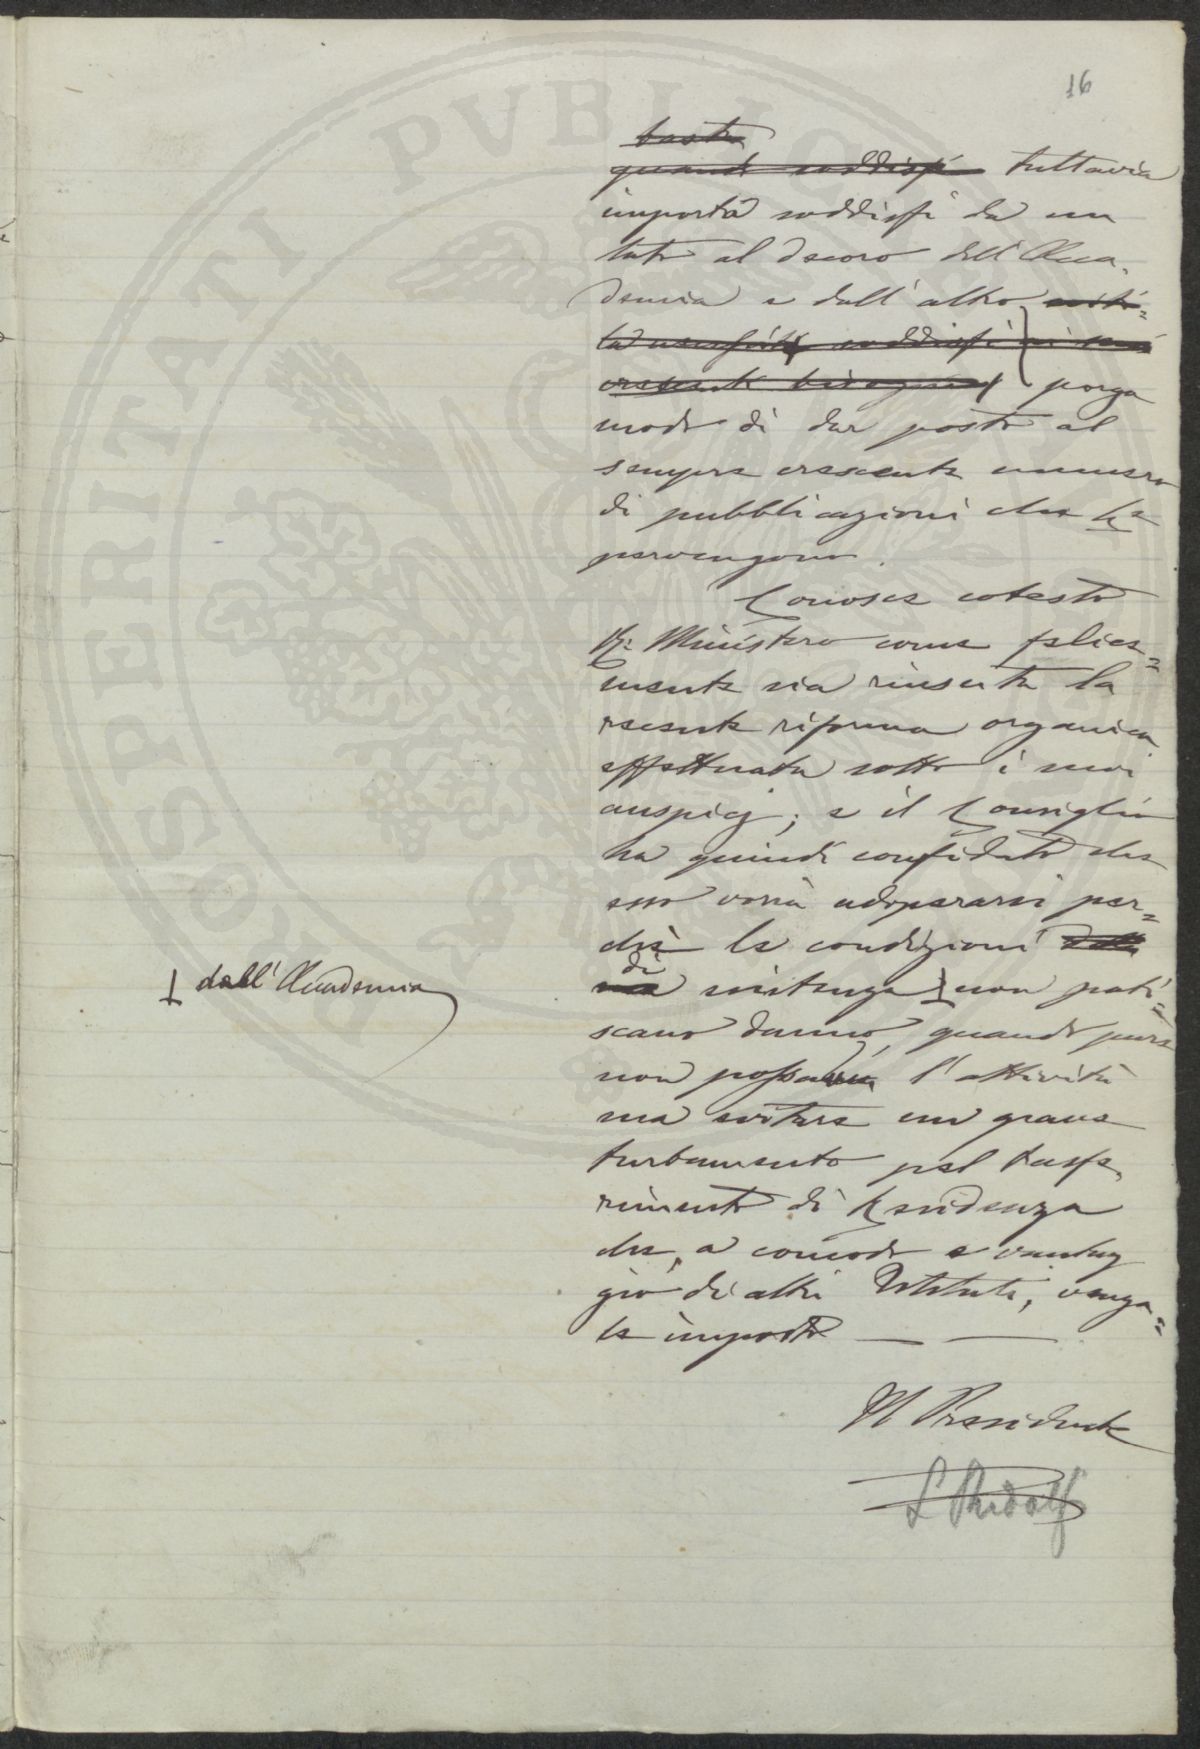 16
basta
quando soddisfi tuttavia
importa soddisfi da un
lato al decoro dell'Acca-
demia e dall'altro
soddisfi
crescente bisogno porga
modo di dar posto al
sempre crescente numero
di pubblicazioni che le
pervengono.
Conosce codesto
R. Ministero come felice=
mente sia riuscita la
recente riforma organica
effettuata sotto i suoi
auspicj; e il Consiglio
ha quindi confidato che
esso vorrà adoperarsi per=
chè le condizioni della
di
sua esistenza non pati=
dall'Accademia
scano danno, quando pure
non possa l'attività
sua evitare un grave
turbamento pel trasfe-
rimento di Residenza
che, a comodo e vantag
gio di altri Istituti, venga=
le imposto
Il Presidente
L Ridolfi
PROSPERITATI PVBLICAE